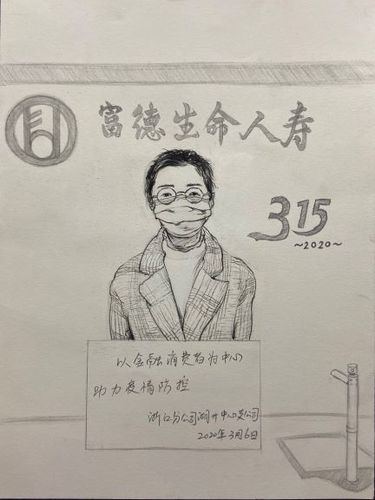 富德生命人寿
315
~2020~
以金融消费者为中心
助力疫情防控
浙江分公司湖州中心支公司
2020年3月6日